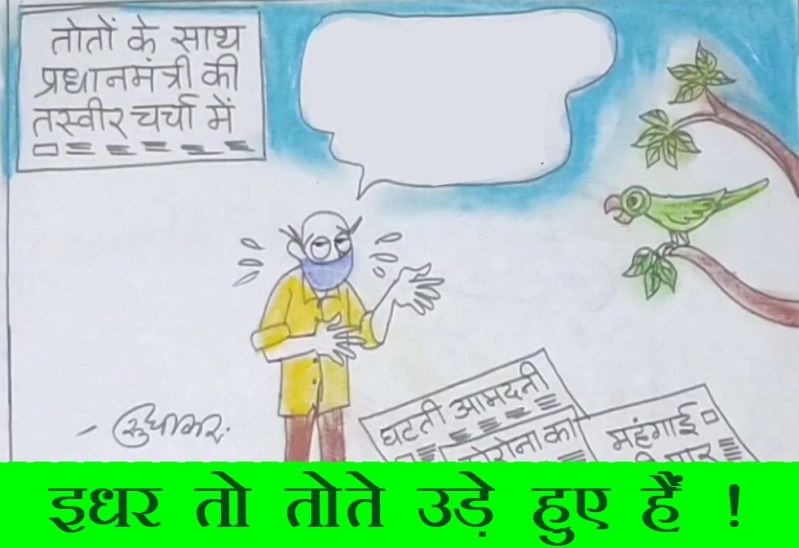 तोतों के साथ
प्रधानमंत्री की
तस्वीर चर्चा में
- सुधाकर
घटती आमदनी
कोरोना का
महंगाई
इधर तो तोते उड़े हुए हैं !